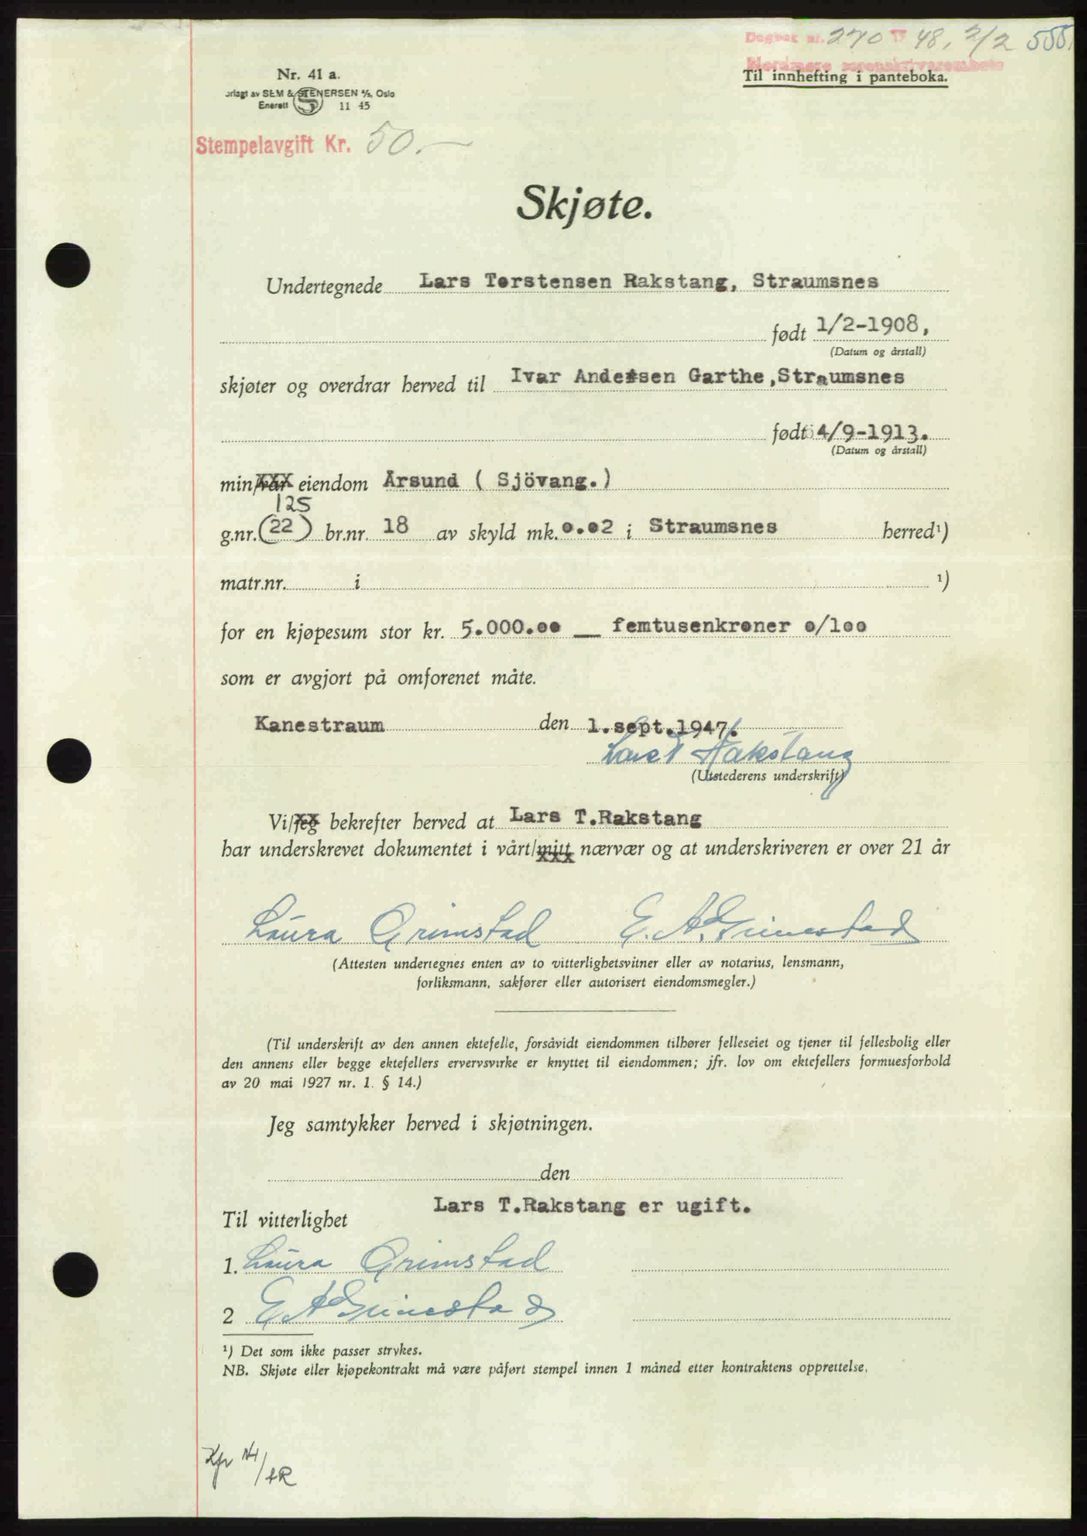 Dagbok nr. 270 19 48, 2/2 555
Nordmøre sorenskriverembete
Til innhefting i panteboka.
Nr. 41 a.
orlagt av SEM & STENERSEN A/S, Oslo
Enerett S 11 45
Stempelavgift Kr. 50.—
Skjøte.
Undertegnede Lars Torstensen Rakstang, Straumsnes
født 1/2-1908,
(Datum og årstall)
skjøter og overdrar herved til Ivar Andersen Garthe,Straumsnes
født 4/9-1913.
(Datum og årstall)
min/vår eiendom Årsund ( Sjövang.)
125
g.nr. (22) br.nr. 18 av skyld mk. o.o2 i Straumsnes herred¹)
matr.nr. i ¹)
for en kjøpesum stor kr. 5.000.oo __ femtusenkroner o/1oo
som er avgjort på omforenet måte.
Kanestraum den 1.sept.1947.
Lars T Rakstang
(Utstederens underskrift)
Vi/jeg bekrefter herved at Lars T.Rakstang
har underskrevet dokumentet i vårt/mitt nærvær og at underskriveren er over 21 år
Laura Grimstad E. A. Grimestad
(Attesten undertegnes enten av to vitterlighetsvitner eller av notarius, lensmann,
forliksmann, sakfører eller autorisert eiendomsmegler.)
(Til underskrift av den annen ektefelle, forsåvidt eiendommen tilhører felleseiet og tjener til fellesbolig eller
den annens eller begge ektefellers ervervsvirke er knyttet til eiendommen; jfr. lov om ektefellers formuesforhold
av 20 mai 1927 nr. 1 § 14.)
Jeg samtykker herved i skjøtningen.
den
Lars T.Rakstang er ugift.
Til vitterlighet
1. Laura Grimstad
2 E A Grimestad
¹) Det som ikke passer strykes.
NB. Skjøte eller kjøpekontrakt må være påført stempel innen 1 måned etter kontraktens opprettelse.